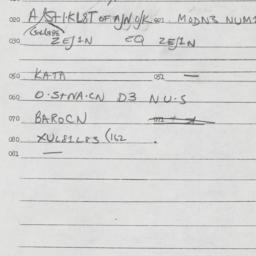 020 A/S+I·KL8T OF A/N O/K 021 MODN3 NUM
030 ZEJ1N EQ ZEJ1N
050 KATA 051 —
060 O·S+NA·CN D3 N U·S
070 BAROCN
080 XUL81L83 (162 .
081 —